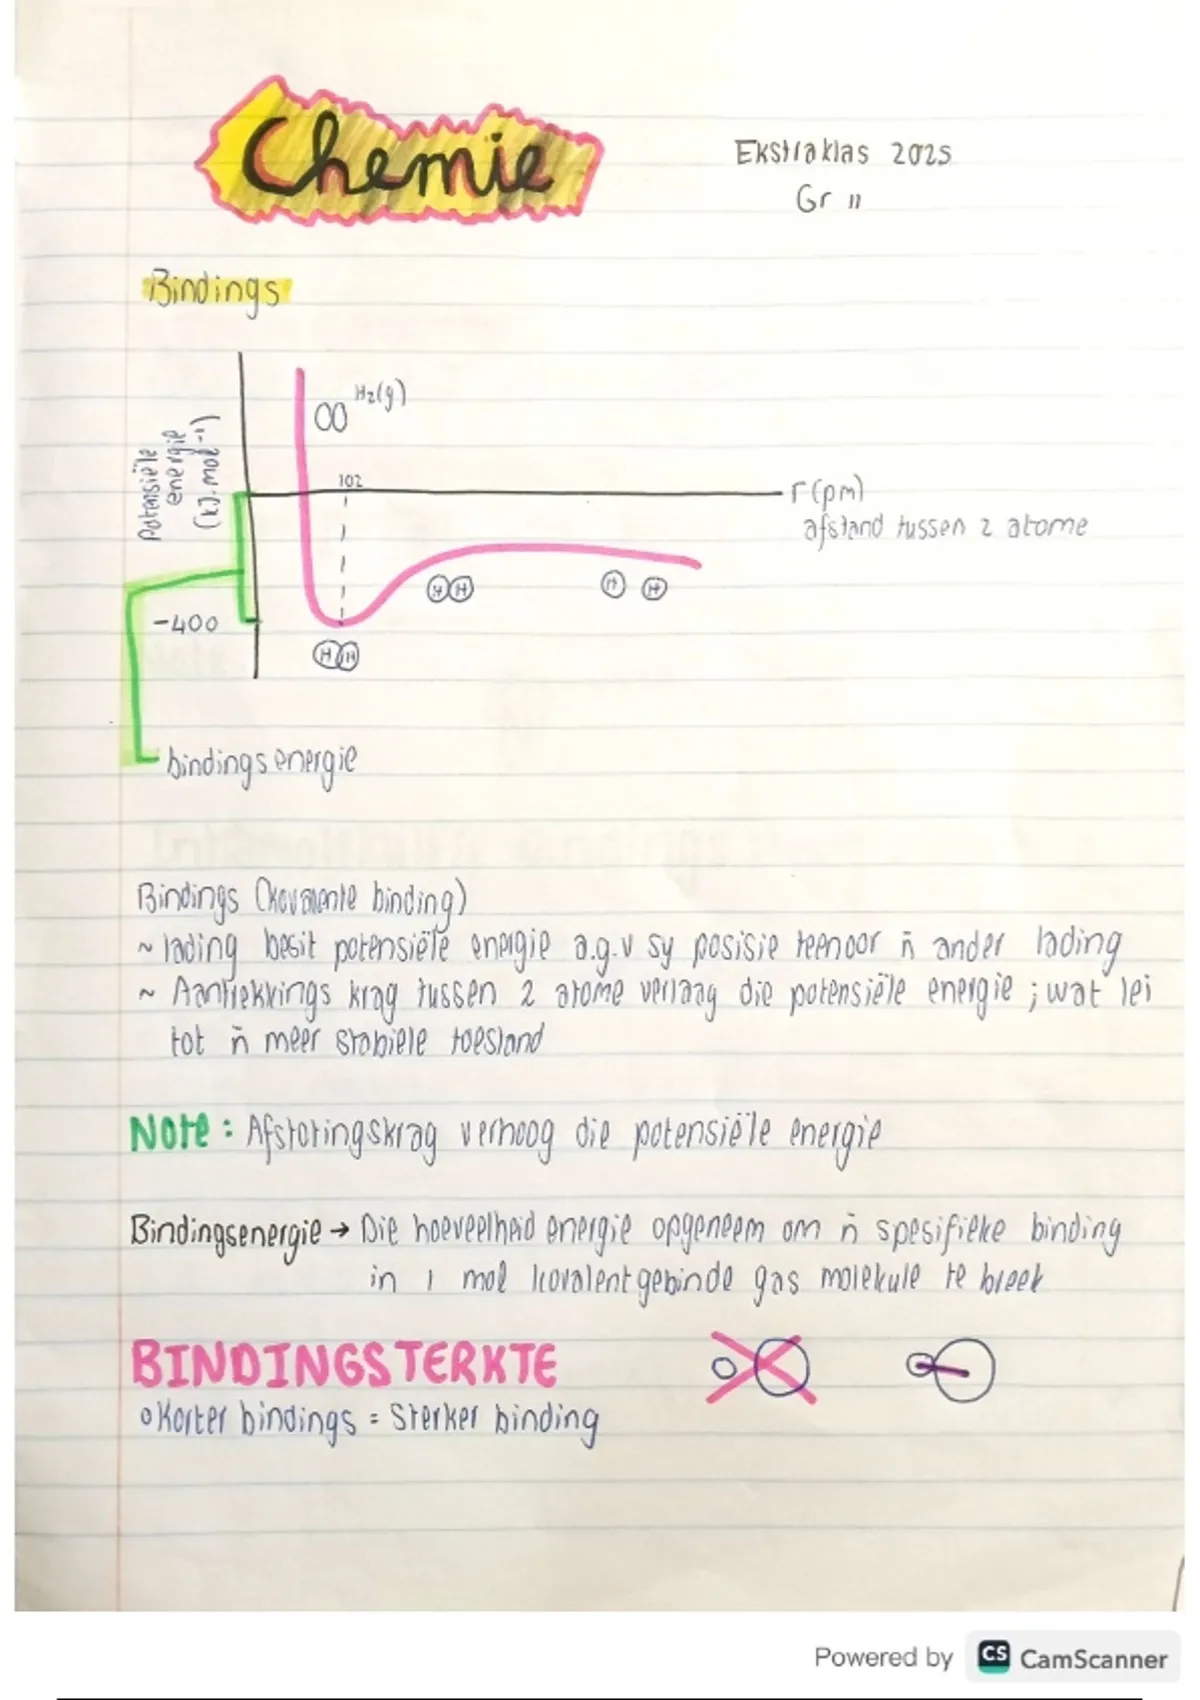 Chemie
Ekstraklas 2025
Gr 11
Bindings
Potensiële
energie
(kJ.mol⁻¹)
H₂(g)
102
r (pm)
afstand tussen 2 atome
H H
H H
-400
H H
bindingsenergie
Bindings (kovalente binding)
~ lading besit potensiële energie a.g.v sy posisie teenoor ñ ander lading
~ Aantrekkings krag tussen 2 atome verlaag die potensiële energie ; wat lei
tot ñ meer stabiele toestand
Note : Afstotingskrag verhoog die potensiële energie
Bindingsenergie → Die hoeveelheid energie opgeneem om ñ spesifieke binding
in 1 mol kovalent gebinde gas molekule te breek
BINDINGSTERKTE
o Korter bindings = Sterker binding
Powered by CS CamScanner